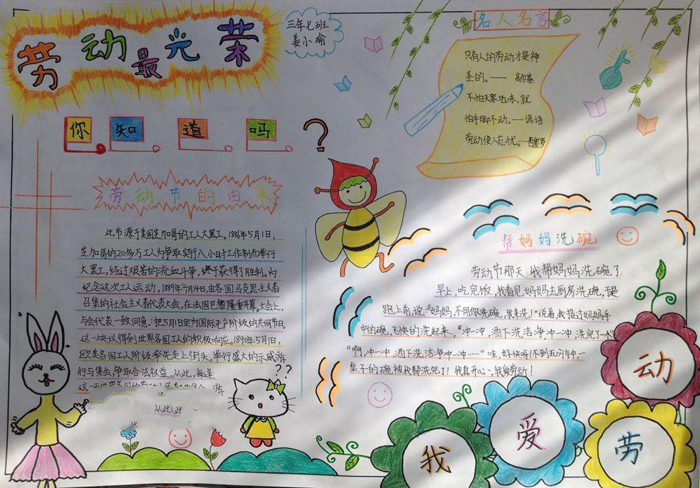 劳动最光荣
三年七班
姜小瑜
名人名言
只有人的劳动才是神
圣的。——高尔基
不怕天寒地冻,就
怕手脚不动。——谚语
劳动使人忘忧。——西塞罗
你知道吗
?
劳动节的由来
此节源于美国芝加哥的工人大罢工。1886年5月1日,
芝加哥的20多万工人为争取实行八小时工作制而举行
大罢工,经过艰苦的流血斗争,终于获得了胜利。为
纪念这次工人运动,1889年7月14日,由各国马克思主义者
召集的社会主义者代表大会,在法国巴黎隆重开幕。大会上,
与会代表一致同意:把5月1日定为国际无产阶级的共同节日。
这一决议得到世界各国工人的积极响应。1890年5月1日,
欧美各国工人阶级率先走上街头,举行盛大的示威游
行与集会,争取合法权益。从此,每逢
从此,此
??
帮妈妈洗碗
劳动节那天,我帮妈妈洗碗了。
早上,吃完饭,我看见妈妈去厨房洗碗,连
跑上前,说:“妈妈,不用你来洗,我来洗!”说着,我接过妈妈手
中的碗,飞快的洗起来。“冲一冲,洒下洗洁净,冲一冲,洗完了一个”
“啊,冲一冲,洒下洗洁净,冲一冲……”哇,好快呀!不到五分钟,一
盆子的碗被我帮洗完了!我真开心,我爱劳动!
我爱劳动